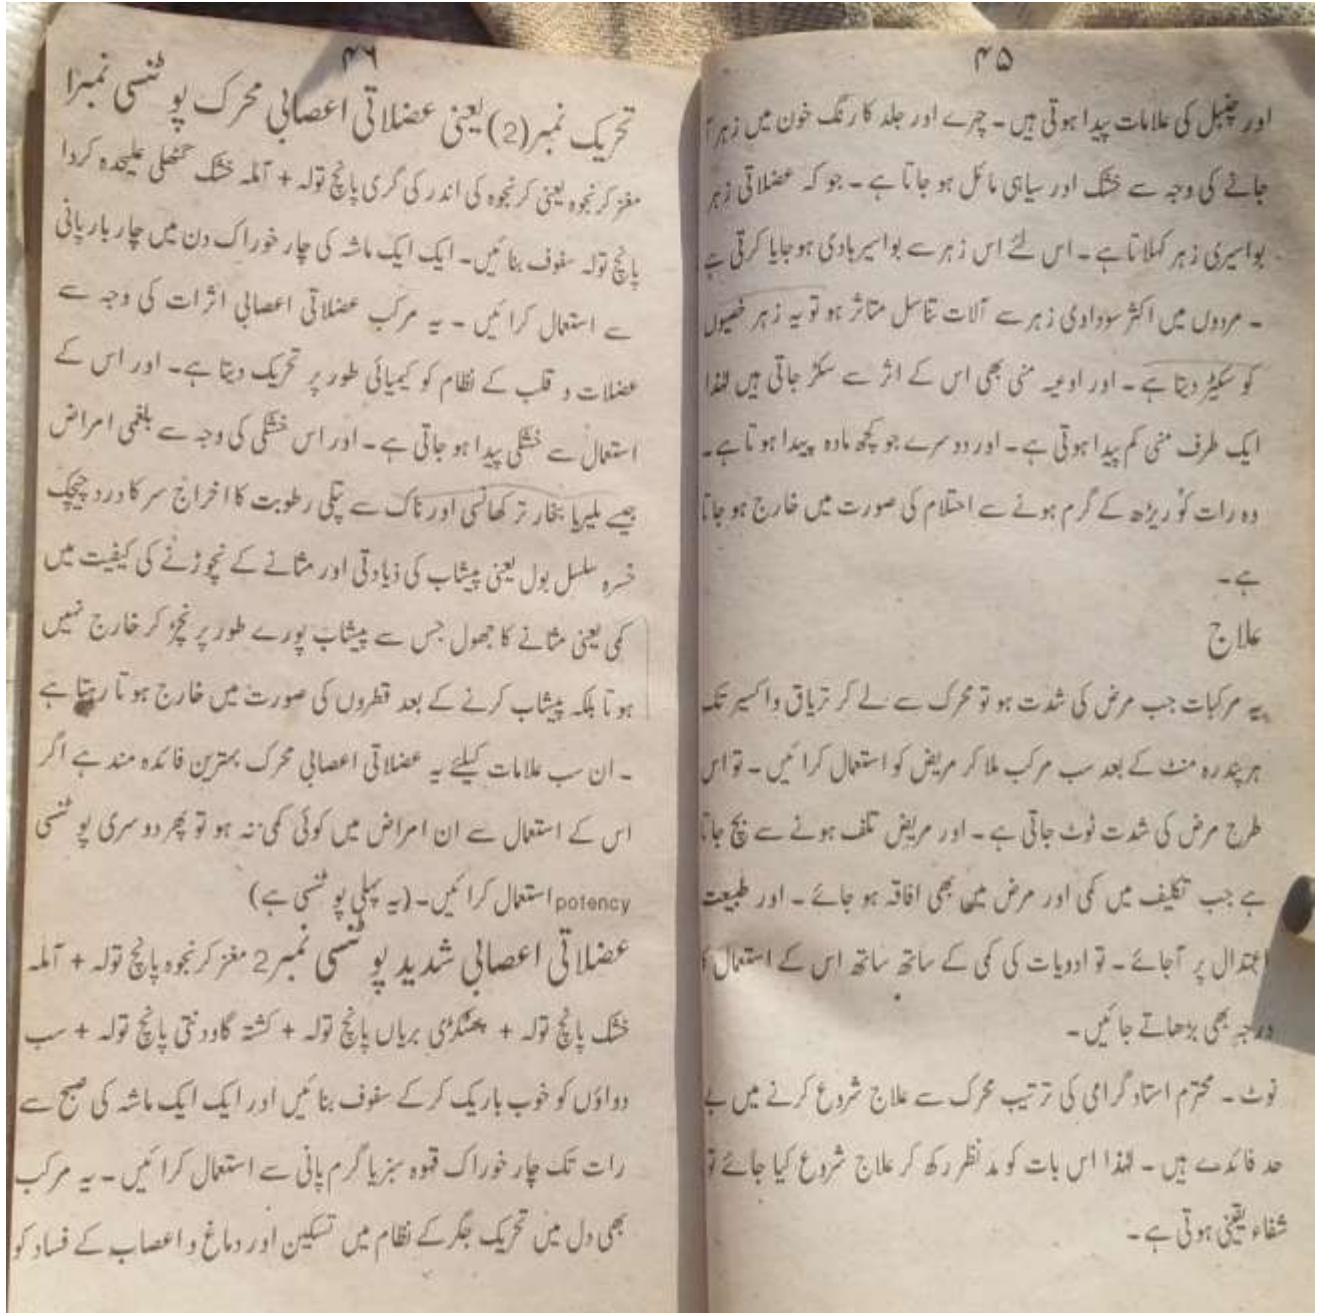 ۴۵
اور چنبل کی علامات پیدا ہوتی ہیں۔ چہرے اور جلد کا رنگ خون میں زہر آ
جانے کی وجہ سے خشک اور سیاہی مائل ہو جاتا ہے۔ جو کہ عضلاتی زہر
بواسیری زہر کہلاتا ہے۔ اس لئے اس زہر سے بواسیر بادی ہو جایا کرتی ہے
۔ مردوں میں اکثر سوداوی زہر سے آلات تناسل متاثر ہو تو یہ زہر خصیوں
کو سکیڑ دیتا ہے۔ اور اوعیہ منی بھی اس کے اثر سے سکڑ جاتی ہیں لہٰذا
ایک طرف منی کم پیدا ہوتی ہے۔ اور دوسرے جو کچھ مادہ پیدا ہوتا ہے۔
وہ رات کو ریڑھ کے گرم ہونے سے احتلام کی صورت میں خارج ہو جاتا
ہے۔
علاج
یہ مرکبات جب مرض کی شدت ہو تو محرک سے لے کر تریاق و اکسیر تک
ہر پندرہ منٹ کے بعد سب مرکب ملا کر مریض کو استعمال کرائیں۔ تو اس
طرح مرض کی شدت ٹوٹ جاتی ہے۔ اور مریض تلف ہونے سے بچ جاتا
ہے جب تکلیف میں کمی اور مرض میں بھی افاقہ ہو جائے۔ اور طبیعت
اعتدال پر آجائے۔ تو ادویات کی کمی کے ساتھ ساتھ اس کے استعمال کا
درجہ بھی بڑھاتے جائیں۔
نوٹ۔ محترم استاد گرامی کی ترتیب محرک سے علاج شروع کرنے میں بے
حد فائدے ہیں۔ لہٰذا اس بات کو مد نظر رکھ کر علاج شروع کیا جائے تو
شفاء یقینی ہوتی ہے۔
۴۶
تحریک نمبر (2) یعنی عضلاتی اعصابی محرک پوٹنسی نمبر ۱
مغز کرنجوہ یعنی کرنجوہ کی اندر کی گری پانچ تولہ + آملہ خشک گٹھلی علیحدہ کردا
پانچ تولہ سفوف بنائیں۔ ایک ایک ماشہ کی چار خوراک دن میں چار بار پانی
سے استعمال کرائیں۔ یہ مرکب عضلاتی اعصابی اثرات کی وجہ سے
عضلات و قلب کے نظام کو کیمیائی طور پر تحریک دیتا ہے۔ اور اس کے
استعمال سے خشکی پیدا ہو جاتی ہے۔ اور اس خشکی کی وجہ سے بلغمی امراض
جیسے ملیریا بخار تر کھانسی اور ناک سے پتلی رطوبت کا اخراج سر کا درد چیچک
خسرہ سلسل بول یعنی پیشاب کی ذیادتی اور مثانے کے نچوڑنے کی کیفیت میں
کمی یعنی مثانے کا جھول جس سے پیشاب پورے طور پر نچڑ کر خارج نہیں
ہوتا بلکہ پیشاب کرنے کے بعد قطروں کی صورت میں خارج ہوتا رہتا ہے
۔ ان سب علامات کیلئے یہ عضلاتی اعصابی محرک بہترین فائدہ مند ہے اگر
اس کے استعمال سے ان امراض میں کوئی کمی نہ ہو تو پھر دوسری پوٹنسی
potency استعمال کرائیں۔ (یہ پہلی پوٹنسی ہے)
عضلاتی اعصابی شدید پوٹنسی نمبر 2 مغز کرنجوہ پانچ تولہ + آملہ
خشک پانچ تولہ + پھٹکڑی بریاں پانچ تولہ + کشتہ گاودنتی پانچ تولہ + سب
دواؤں کو خوب باریک کرکے سفوف بنائیں اور ایک ایک ماشہ کی صبح سے
رات تک چار خوراک قہوہ سبز یا گرم پانی سے استعمال کرائیں۔ یہ مرکب
بھی دل میں تحریک جگر کے نظام میں تسکین اور دماغ و اعصاب کے فساد کو